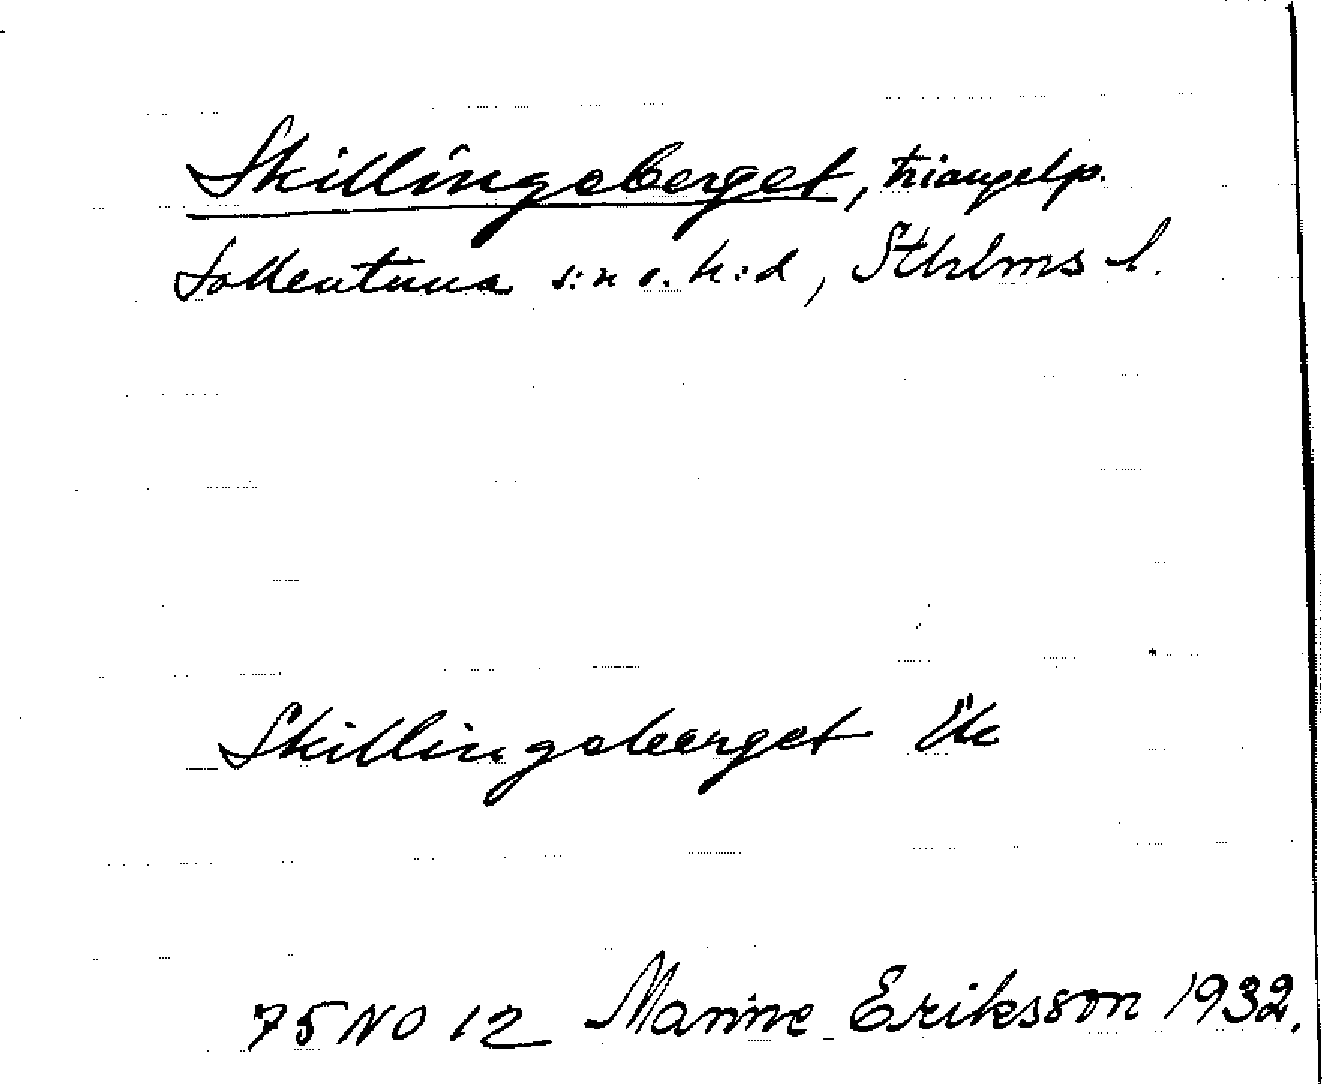 Skillingsberget, triangelp.
Sollentuna s:n o. h:d, Sthlms l.
Skillingsberget Ek
75 NO 12 Manne Eriksson 1932.